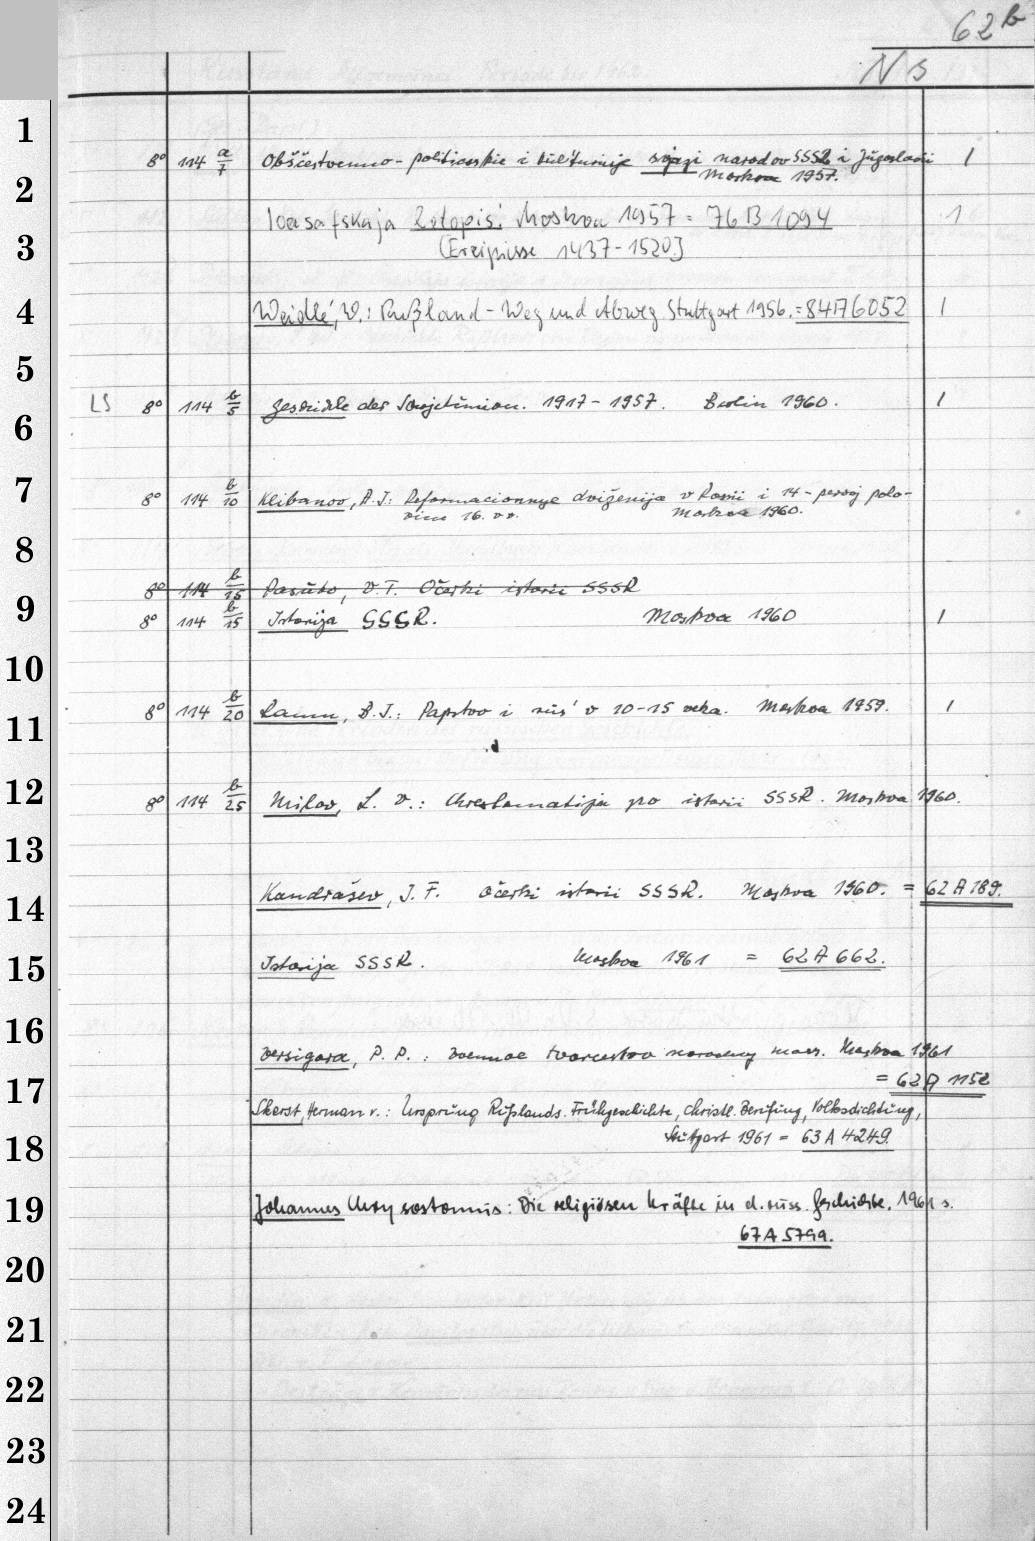 62 b
Ns
1
8° 114 a/7 Obščestvenno-političeskie i kulturnije svjazi narodov SSSR i Jugoslavii 1
2
Moskva 1957.
Ioasafskaja Letopis' Moskva 1957 = 76 B 1094 1
3
[Ereignisse 1437-1520]
4
Weidlé, W.: Rußland - Weg und Abweg Stuttgart 1956. = 84A6052 1
5
LS 8° 114 b/5 Geschichte der Sowjetunion. 1917-1957. Berlin 1960. 1
6
7
8° 114 b/10 Klibanov, A.I.: Reformacionnye dviženija v Rossii i 14-pervoj polo-
vine 16. vv. Moskva 1960.
8
8° 114 b/15 Pasuto, V.T. Očerki istorii SSSR
9
8° 114 b/15 Istorija SSSR. Moskva 1960 1
10
8° 114 b/20 Ramm, B.J.: Papstvo i rus' v 10-15 veka. Moskva 1959. 1
11
12
8° 114 b/25 Milov, L. V.: Chrestomatija po istorii SSSR. Moskva 1960.
13
14
Kandrašev, I. F. Očerki istorii SSSR. Moskva 1960. = 62 A 189.
15
Istorija SSSR. Moskva 1961 = 62 A 662.
16
Versigora, P. P.: Voennoe tvorcestvo narodnyj mass. Moskva 1961
17
= 62 A 1152
Skerst, Herman v.: Ursprung Rußlands. Frühgeschichte, Christl. Berufung, Volksdichtung,
18
Stuttgart 1961 = 63 A 4249.
19
Johannes Chrysostomus: Die religiösen Kräfte in d. russ. Geschichte. 1961 s.
67 A 5799.
20
21
22
23
24